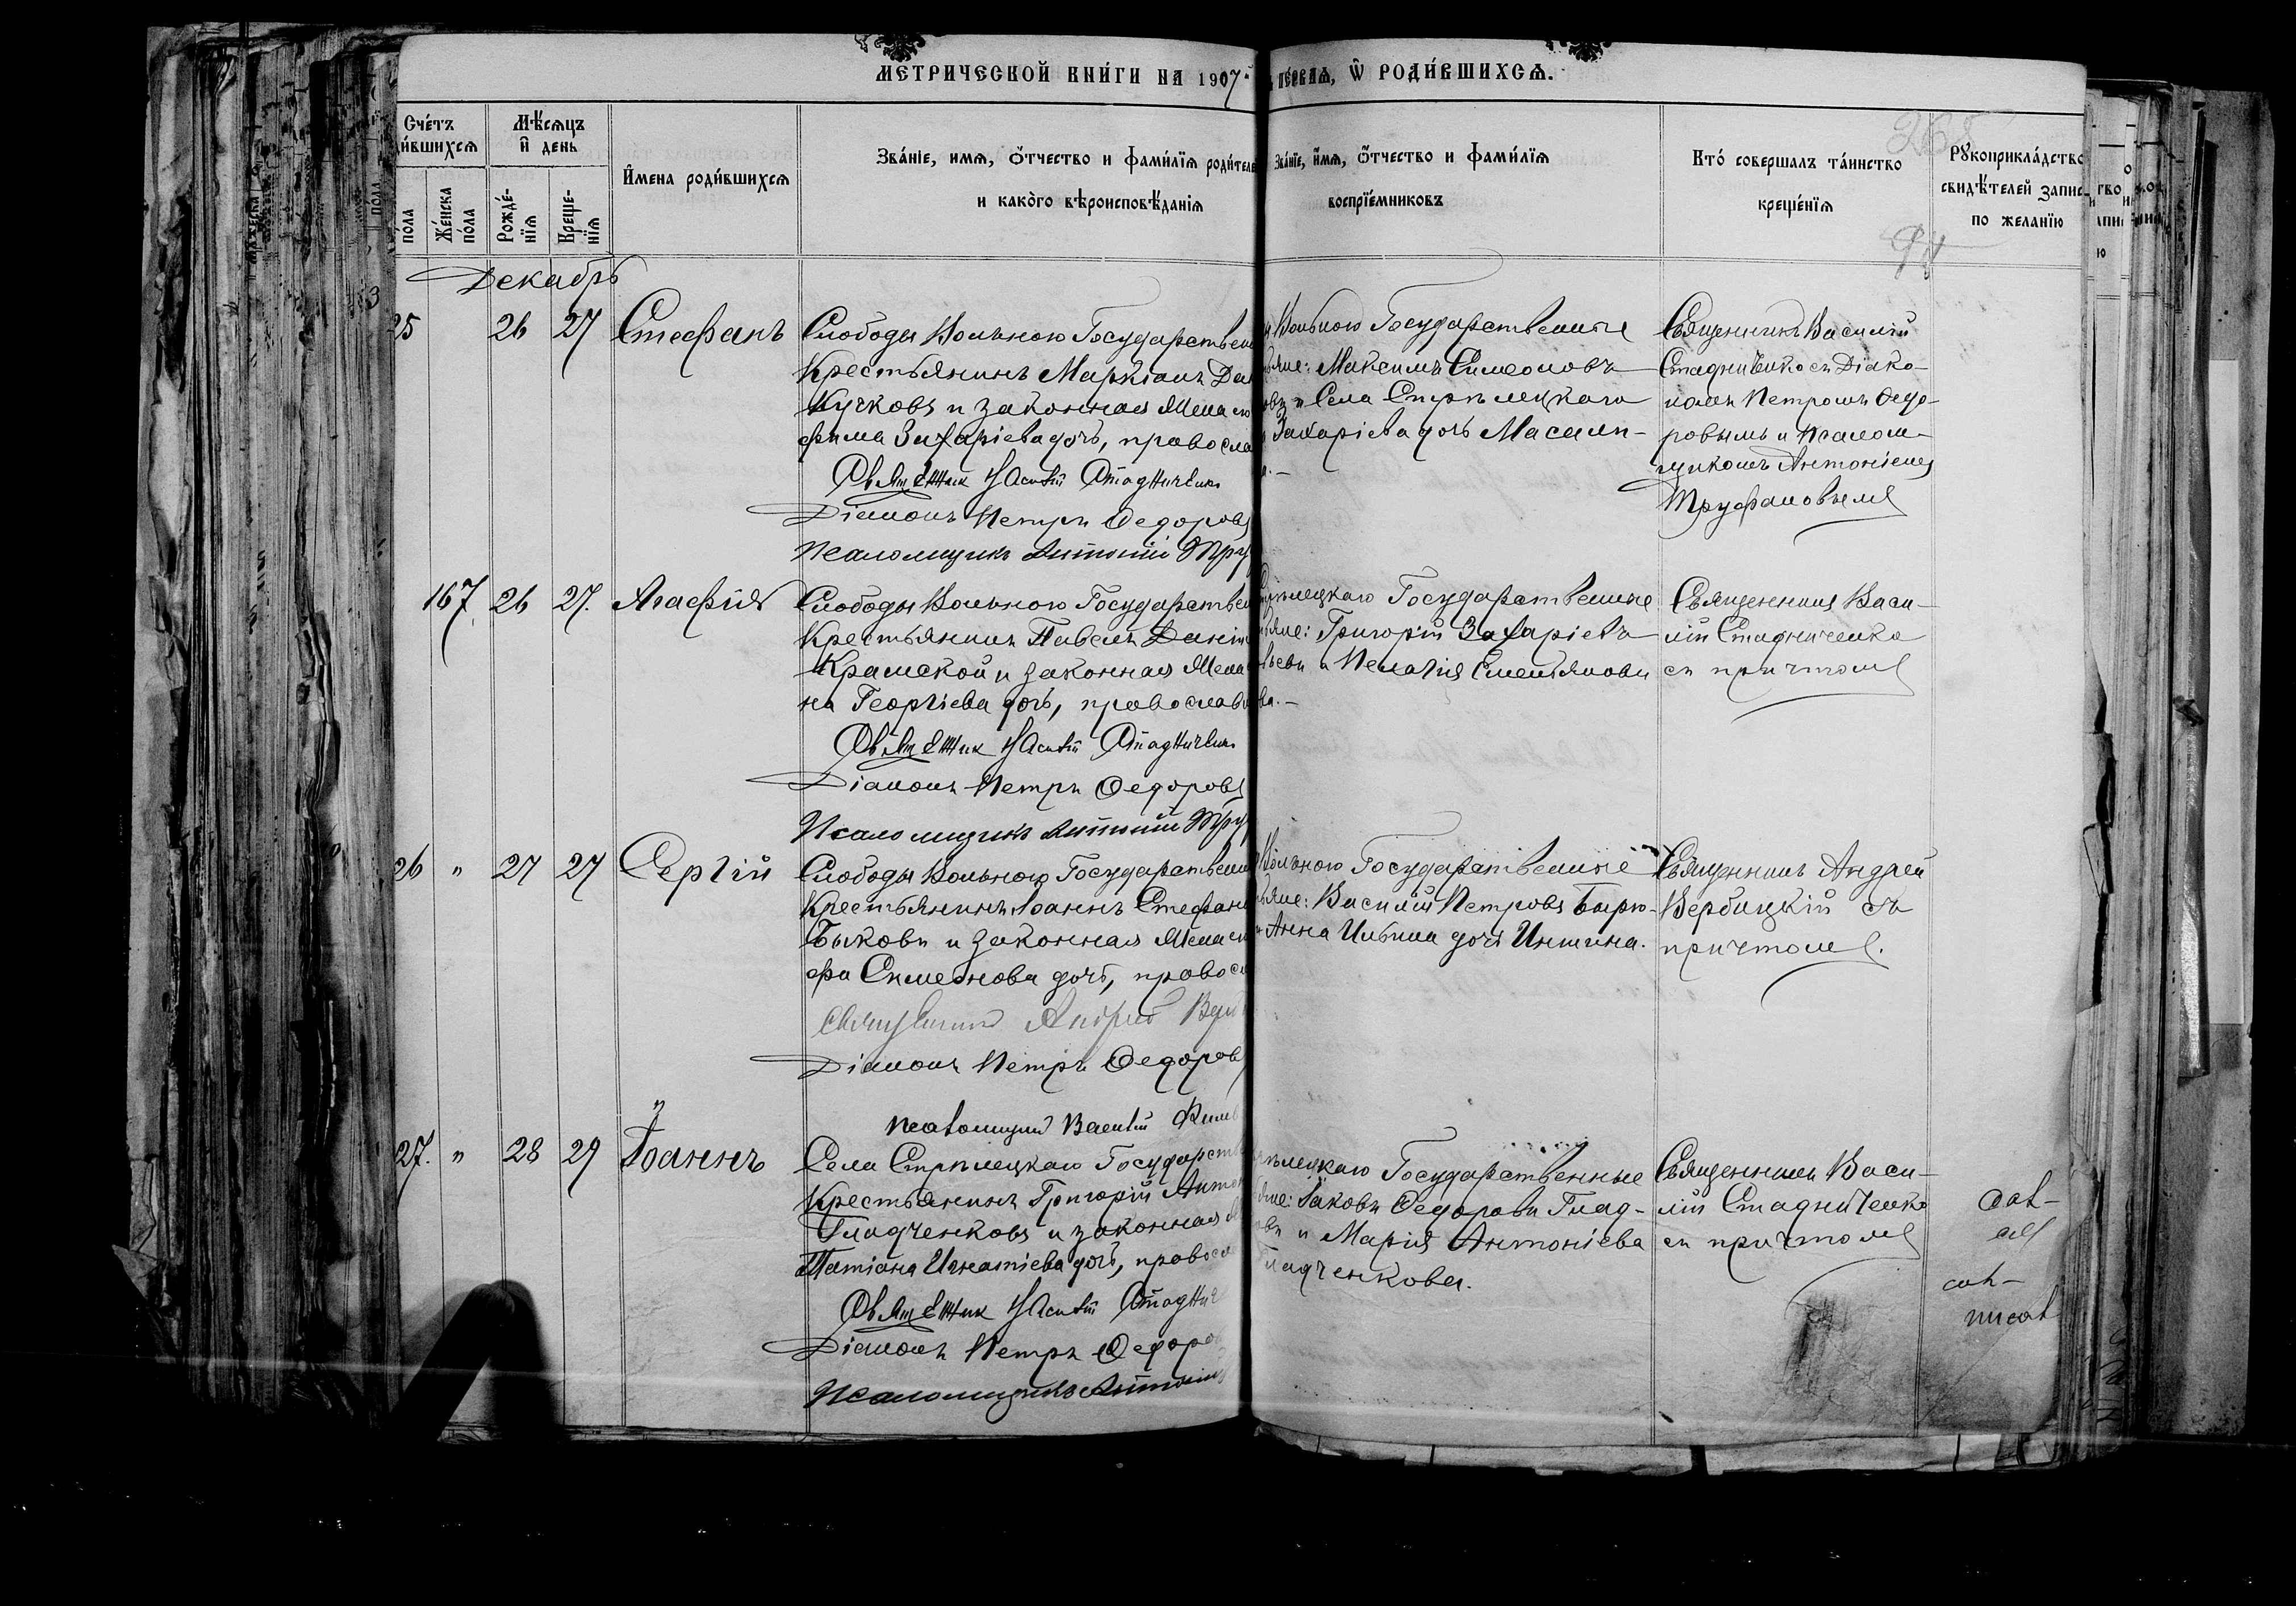 МЕТРИЧЕСКОЙ КНИ́ГИ НА 1907
ПЕ́РВАЯ, Ѡ РОДИ́ВШИХСЯ.
Сче́тъ
и́вшихся
Мѣ́сяцъ
и день
Имена роди́вшихся
Зва́нiе, имя, о́тчество и фами́лїя роди́теле
и како́го вѣроисповѣ́данiя
Зва́нїе, и́мя, о́тчество и фами́лїя
воспрїе́мниковъ
Кто́ совершалъ та́инство
креще́нїя
Рꙋкоприкла́дство
свидѣ́телей запис
по желанїю
по́ла
Же́нска
по́ла
Рожде́-
нїя
Креще-
нїя
Декабрь
25 26 27 Стефанъ
Слободы Вольною Государствен
Крестьянинъ Маркіанъ Дан
Кучковъ и законная жена
фима Захаріева дочь, правосла
Священник Василій Стадниченко
Діаконъ Петръ Федоровъ
Псаломщикъ Антоній Тру
Вольною Государственные
яне: Максимъ Симеоновъ
овъ и Села Стрѣлецкаго
Захаріева дочь
Священникъ Василій
Стадниченко съ Діако-
номъ Петромъ Федо-
ровымъ и Псалом-
щикомъ Антоніемъ
Труфановымъ
167 26 27. Агафія
Слободы Вольною Государствен
Крестьянинъ Павелъ Даніи
Крамской и законная жена
на Георгіева дочь, православ
Священник Василій Стадниченко
Діаконъ Петръ Федоровъ
Псаломщикъ Антоній Тру
ѣлецкаго Государственные
яне: Григорій Захаріевъ
и Пелагія Емельянова
ва.-
Священникъ Васи-
лій Стадниченко
съ причтомъ
26 " 27 27 Сергій
Слободы Вольною Государствен
Крестьянинъ Іоаннъ Стефан
Быковъ и законная жена
фи Симеонова дочь, правос
Священникъ Андрей Вер
Діаконъ Петръ Федоровъ
Псаломщикъ Василій
Вольною Государственные
яне: Василій Петровъ Бирю-
Анна Ильина дочь Иншина.
Священникъ Андрей
Вербицкій съ
причтомъ.
27. " 28 29 Іоаннъ
Села Стрѣлецкаго Государств
Крестьянинъ Григорій Антон
Гладченковъ и законная
Татіана Игнатіева дочь, правосл
Священник Василій Стадни
Діаконъ Петръ Федоро
Псаломщикъ Антоній
ѣлецкаго Государственные
яне: Іаковъ Федоровъ Глад-
овъ и Марія Антоніева
Гладченкова.
Священникъ Васи-
лій Стадниченко
съ причтомъ